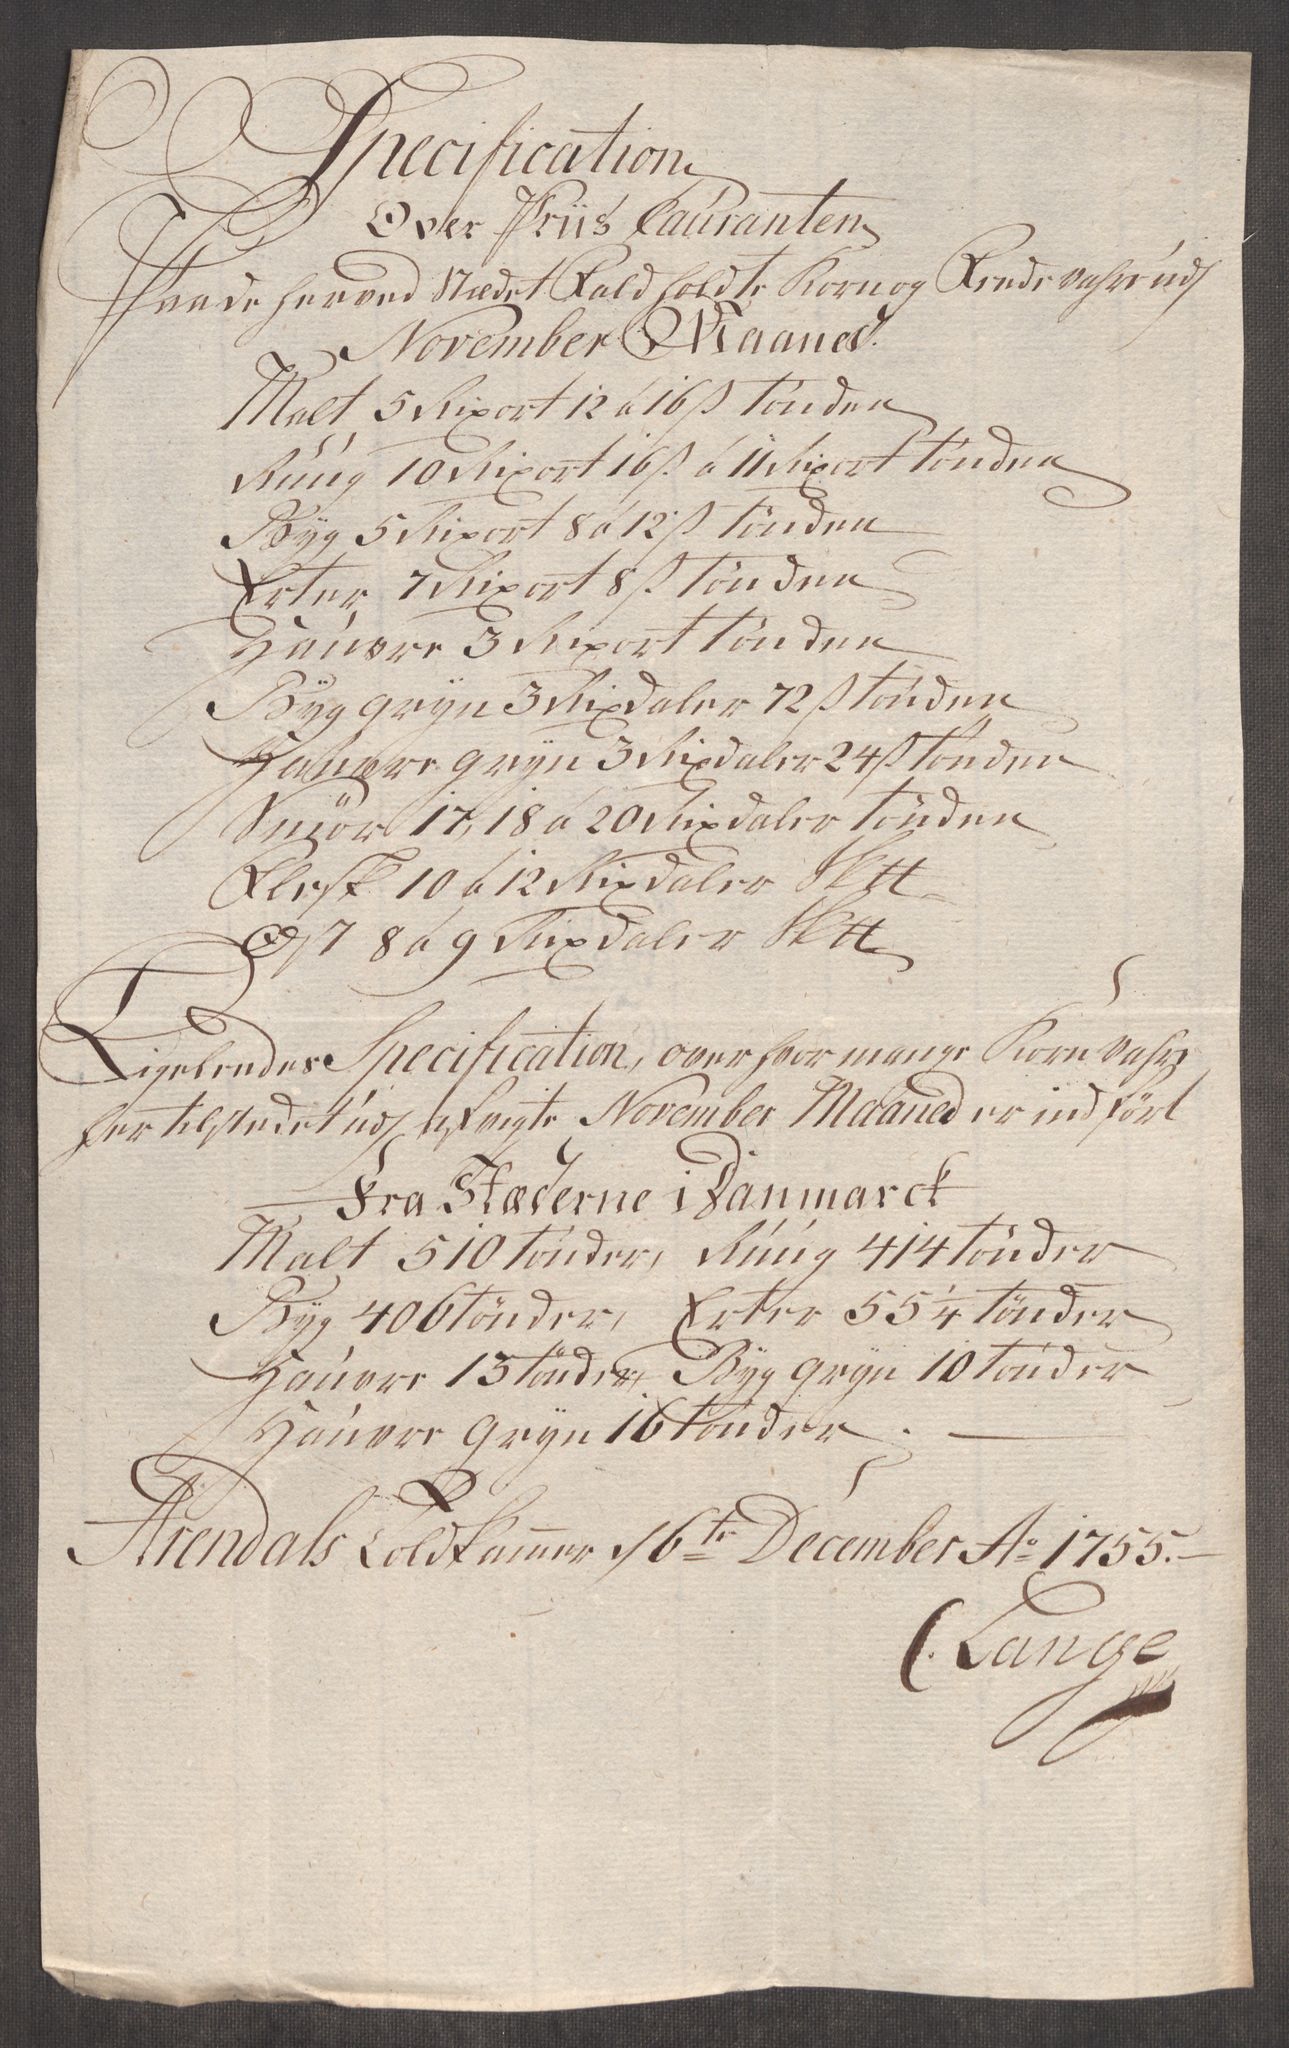 Specification
Over Priis Cauranten
Paa de her ved Stædet Fald holdte Korn og Fede vahre udj
November Maaned.
Malt 5 Rixort 12 á 16 ß Tønden
Rúúg 10 Rixort 16 ß á 11 Rixort Tønden
Byg 5 Rixort 8 á 12 ß Tønden
Erter 7 Rixort 8 ß Tønden
Haúvre 3 Rixort Tønden
Byg gryn 3 Rixdaler 72 ß Tønden
Haúvre gryn 3 Rixdaler 24 ß Tønden
Smør 17, 18 á 20 Rixdaler Tønden
Flesk 10 á 12 Rixdaler Sk tt
Ost 8 á 9 Rixdaler Sk tt
Ligeledes Specification, over hvor mange Korn vahre
her til stedet udj afvigte November Maaned er indført
Fra Stæderne i Danmarck
Malt 510 Tønder, Rúúg 414 Tønder
Byg 406 Tønder, Erter 55 1/4 Tønder
Haúvre 13 Tønder, Byg gryn 10 Tønder
Haúvre gryn 16 Tønder.
Arendals Toldkamer d 6te December Ao 1755.
C. Lange